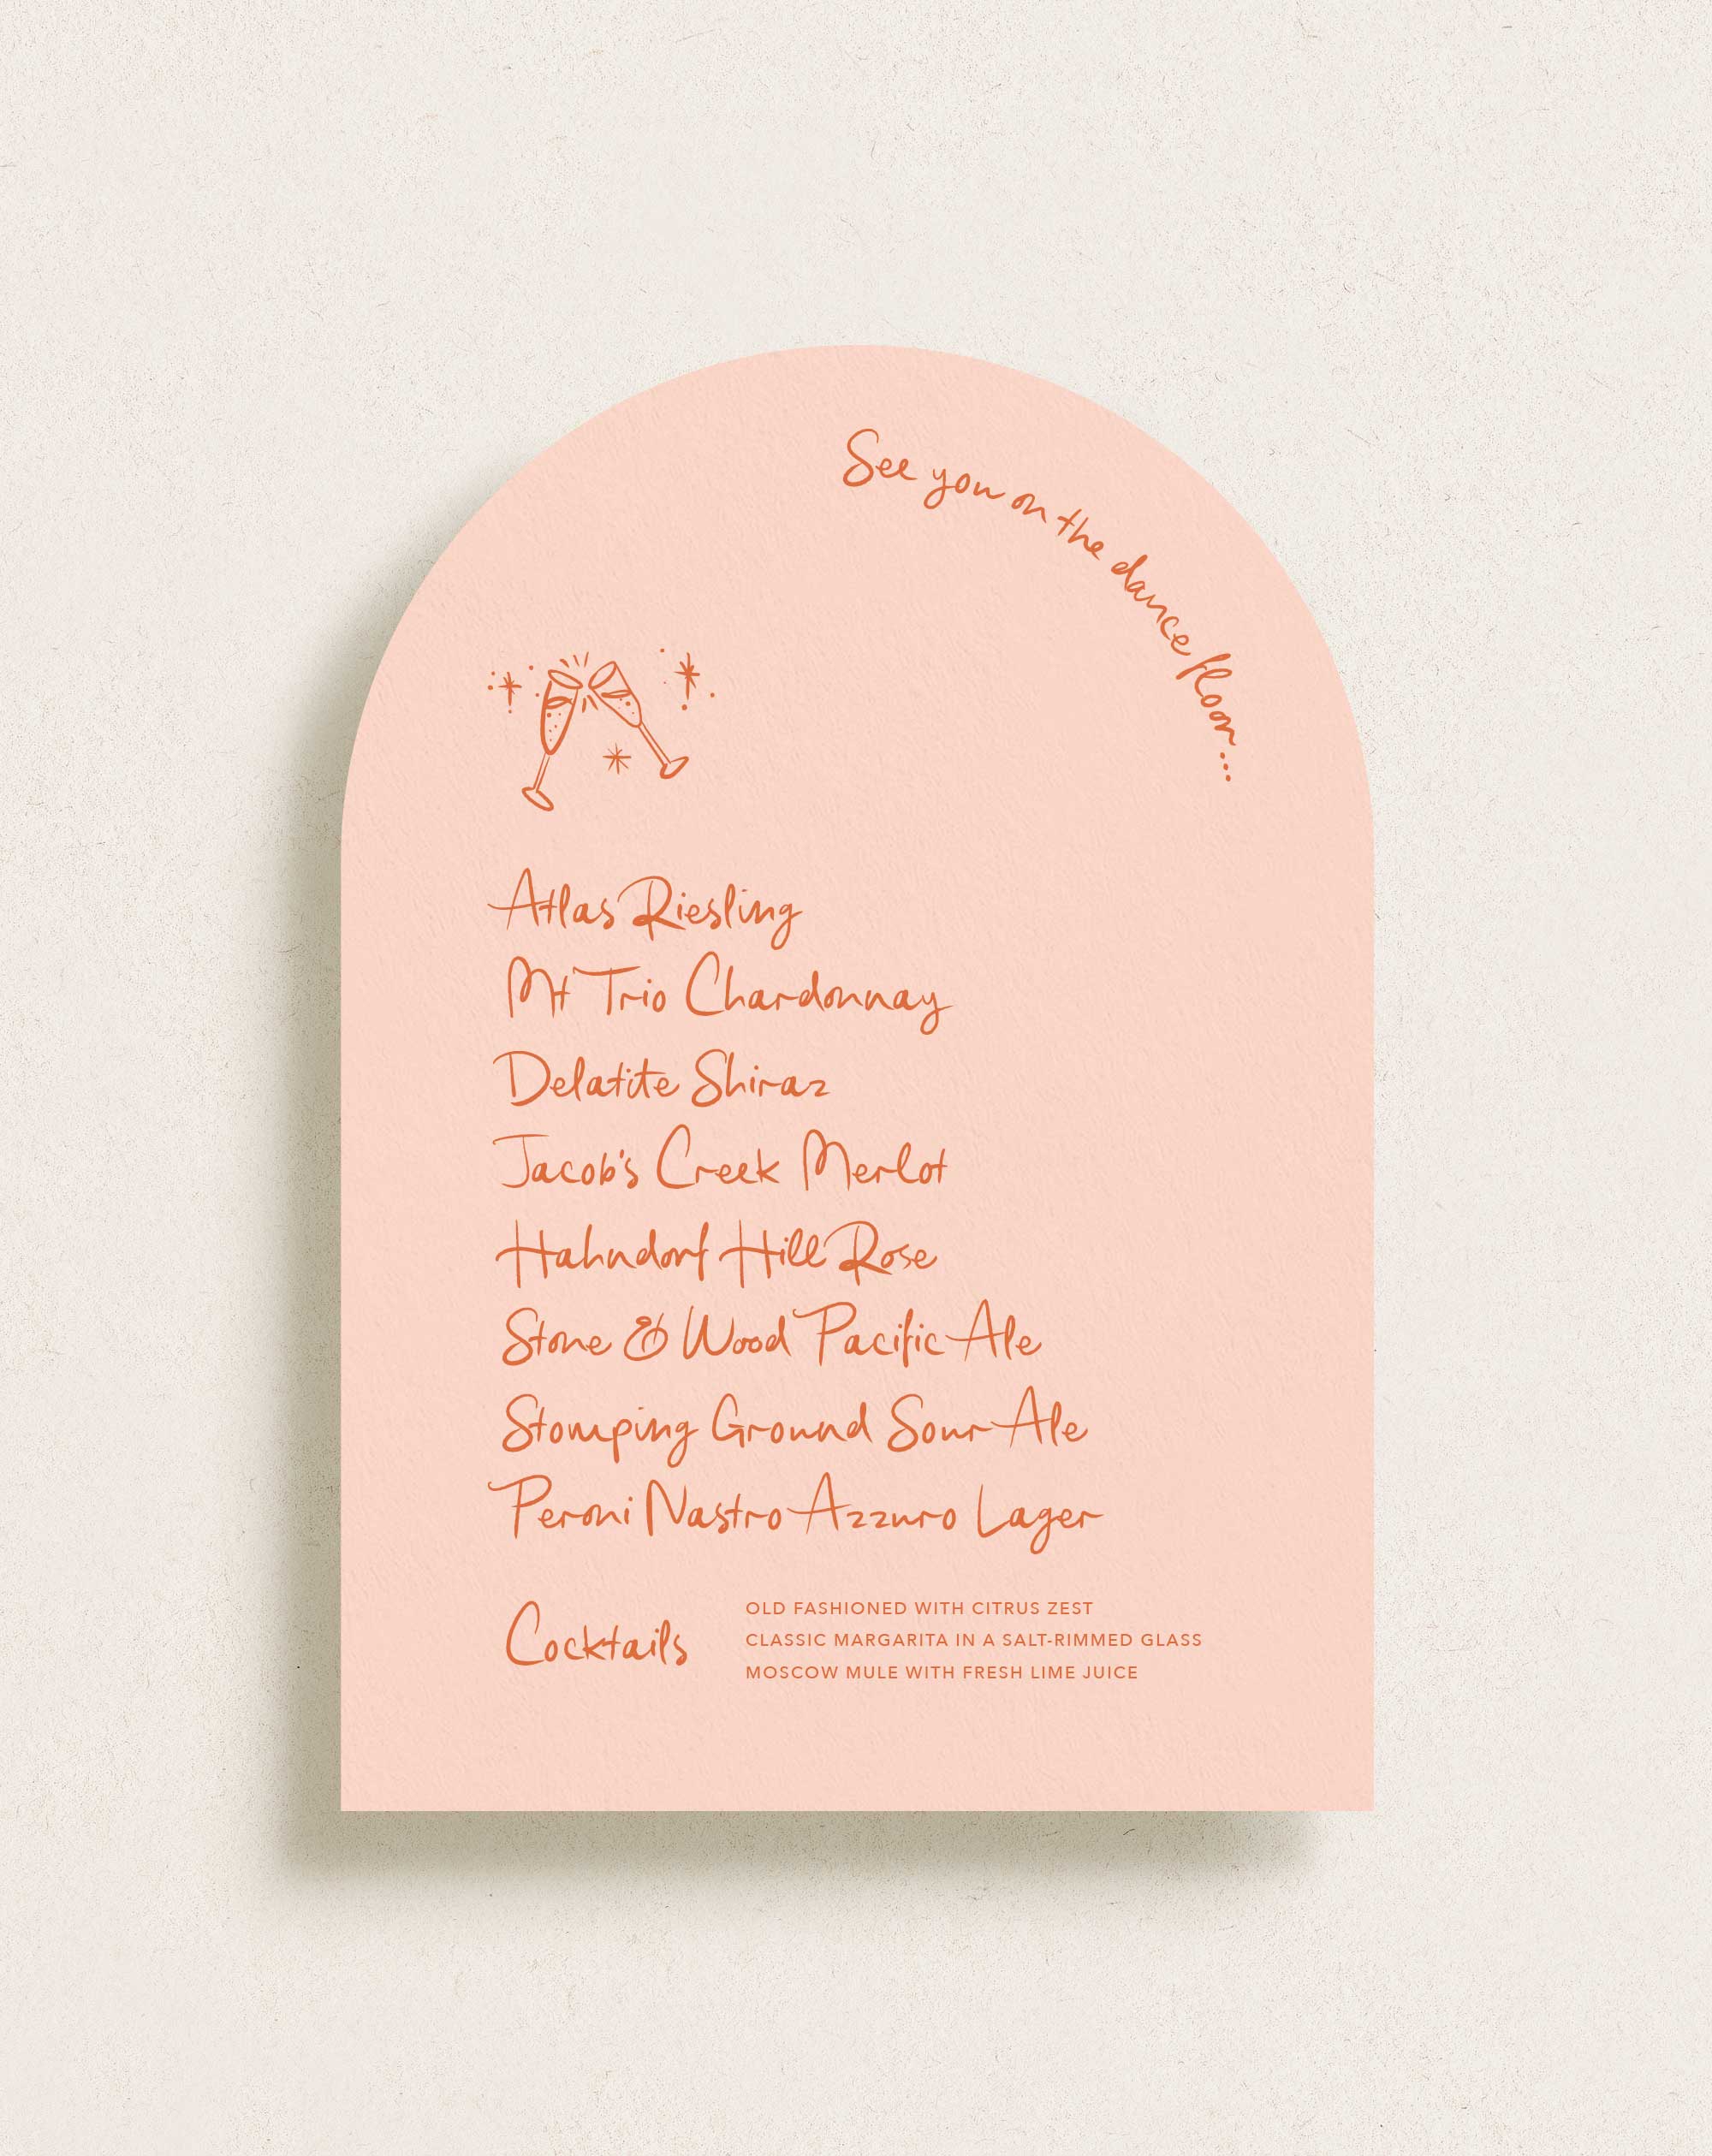 See you on the dance floor...
Atlas Riesling
Mt Trio Chardonnay
Delatite Shiraz
Jacob's Creek Merlot
Hahndorf Hill Rose
Stone & Wood Pacific Ale
Stomping Ground Sour Ale
Peroni Nastro Azzuro Lager
Cocktails
OLD FASHIONED WITH CITRUS ZEST
CLASSIC MARGARITA IN A SALT-RIMMED GLASS
MOSCOW MULE WITH FRESH LIME JUICE